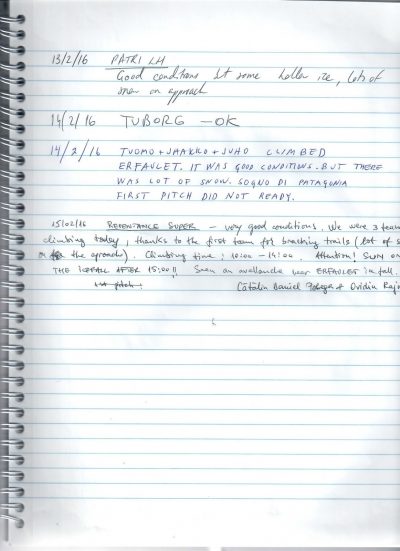 13/2/16 PATRI LH
Good conditions, bt some hollow ice, lots of
snow on approach
14/2/16 TUBORG - OK
14/2/16 TUOMO + JAAKKO + JUHO CLIMBED
ERFAULET. IT WAS GOOD CONDITIONS. BUT THERE
WAS LOT OF SNOW. SOGNO DI PATAGONIA
FIRST PITCH DID NOT READY.
15/02/16 REPENTANCE SUPER - very good conditions. We were 3 teams
climbing today, thanks to the first team for breaching trails (lot of s
on the aproach). Climbing time: 10:00 - 14:00. Attention! SUN ON
THE ICEFALL AFTER 15:00!! Seen an avallanche near ERFAULET icefall.
1st pitch. Cătălin Daniel & Ovidiu